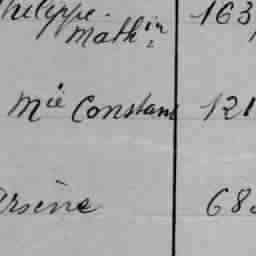 Philippe. 163
Math in:
Mie Constant 121
Arsène 68